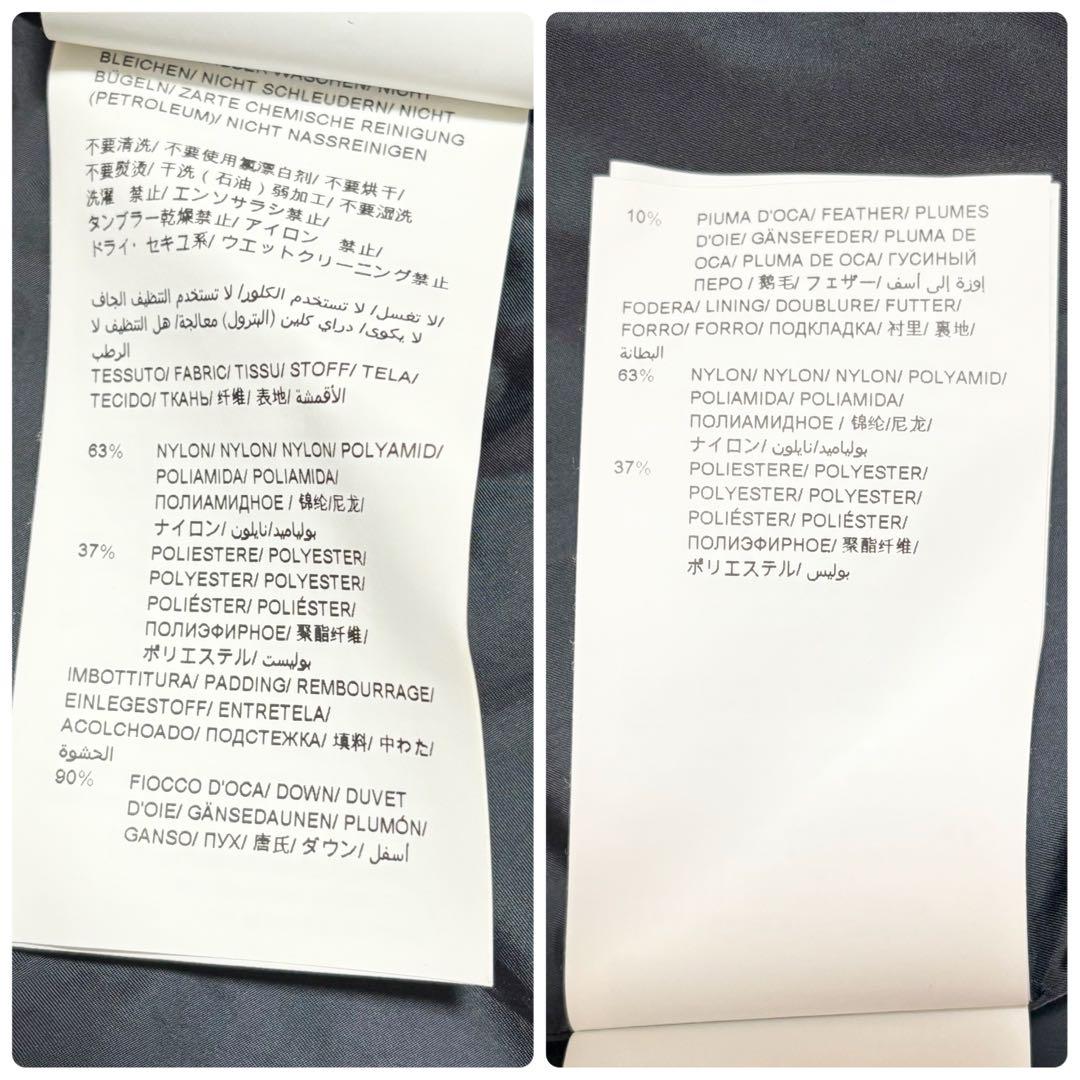 WASCHEN/ NICHT
BLEICHEN/ NICHT SCHLEUDERN/ NICHT
BÜGELN/ ZARTE CHEMISCHE REINIGUNG
(PETROLEUM)/ NICHT NASSREINIGEN
不要清洗/ 不要使用氯漂白剂/ 不要烘干/
不要熨烫/ 干洗 ( 石油 ) 弱加工/ 不要湿洗
洗濯 禁止/ エンソサラシ禁止/
タンブラー乾燥禁止/ アイロン 禁止/
ドライ・セキユ系/ ウエットクリーニング禁止
/لا تغسل/ لا تستخدم الكلور/ لا تستخدم التنظيف الجاف
لا يكوى/ دراي كلين (البترول) معالجة/ هل التنظيف لا
الرطب
TESSUTO/ FABRIC/ TISSU/ STOFF/ TELA/
TECIDO/ ТКАНЬ/ 纤维/ 表地/ الأقمشة
63% NYLON/ NYLON/ NYLON/ POLYAMID/
POLIAMIDA/ POLIAMIDA/
ПОЛИАМИДНОЕ / 锦纶/尼龙/
ナイロン/ بولياميد/نايلون
37% POLIESTERE/ POLYESTER/
POLYESTER/ POLYESTER/
POLIÉSTER/ POLIÉSTER/
ПОЛИЭФИРНОЕ/ 聚酯纤维/
ポリエステル/ بوليست
IMBOTTITURA/ PADDING/ REMBOURRAGE/
EINLEGESTOFF/ ENTRETELA/
ACOLCHOADO/ ПОДСТЕЖКА/ 填料/ 中わた/
الحشوة
90% FIOCCO D'OCA/ DOWN/ DUVET
D'OIE/ GÄNSEDAUNEN/ PLUMÓN/
GANSO/ ПУХ/ 唐氏/ ダウン/ أسفل
10% PIUMA D'OCA/ FEATHER/ PLUMES
D'OIE/ GÄNSEFEDER/ PLUMA DE
OCA/ PLUMA DE OCA/ ГУСИНЫЙ
ПЕРО / 鹅毛/ フェザー/ إوزة إلى أسف
FODERA/ LINING/ DOUBLURE/ FUTTER/
FORRO/ FORRO/ ПОДКЛАДКА/ 衬里/ 裏地/
البطانة
63% NYLON/ NYLON/ NYLON/ POLYAMID/
POLIAMIDA/ POLIAMIDA/
ПОЛИАМИДНОЕ / 锦纶/尼龙/
ナイロン/ بولياميد/نايلون
37% POLIESTERE/ POLYESTER/
POLYESTER/ POLYESTER/
POLIÉSTER/ POLIÉSTER/
ПОЛИЭФИРНОЕ/ 聚酯纤维/
ポリエステル/ بوليس